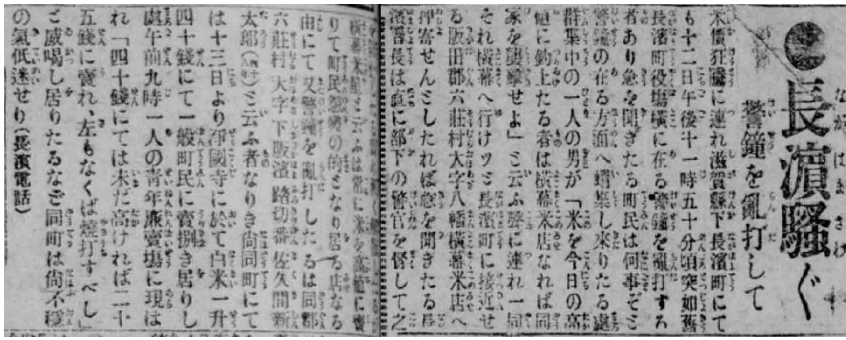 長濱騷ぐ
警鐘を亂打して
米價狂騰に連れ滋賀縣下長濱町にて
も十二日午後十一時五十分頃突如舊
長濱町役塲橫に在る警鐘を亂打する
者あり急を聞きたる町民は何事ぞと
警鐘の在る方面へ蝟集し來りたる處
群集中の一人の男が「米を今日の高
値に釣上たる者は橫幕米店なれば同
家を襲擊せよ」と云ふ聲に連れ一同
それ橫幕へ行けツと長濱町に接近せ
る阪田郡六莊村大字八幡橫幕米店へ
押寄せんとしたれば急を聞きたる長
濱署長は直に部下の警官を督して之
橫幕米屋と云ふは常に米を高値に賣
りて町民怨嗟の的となり居る店なる
由にて又警鐘を亂打したるは同郡
六莊村大字下阪濱踏切番佐久間新
太郎
と云ふ者なりき尙同町にて
は十三日より御國寺に於て白米一升
四十錢にて一般町民に賣捌き居りし
處午前九時一人の靑年廉賣塲に現は
れ「四十錢にては未だ高ければ二十
五錢に賣れ、左もなくば燒打すべし」
と威喝し居りたるなど同町は尙不穩
の氣低迷せり(長濱電話)